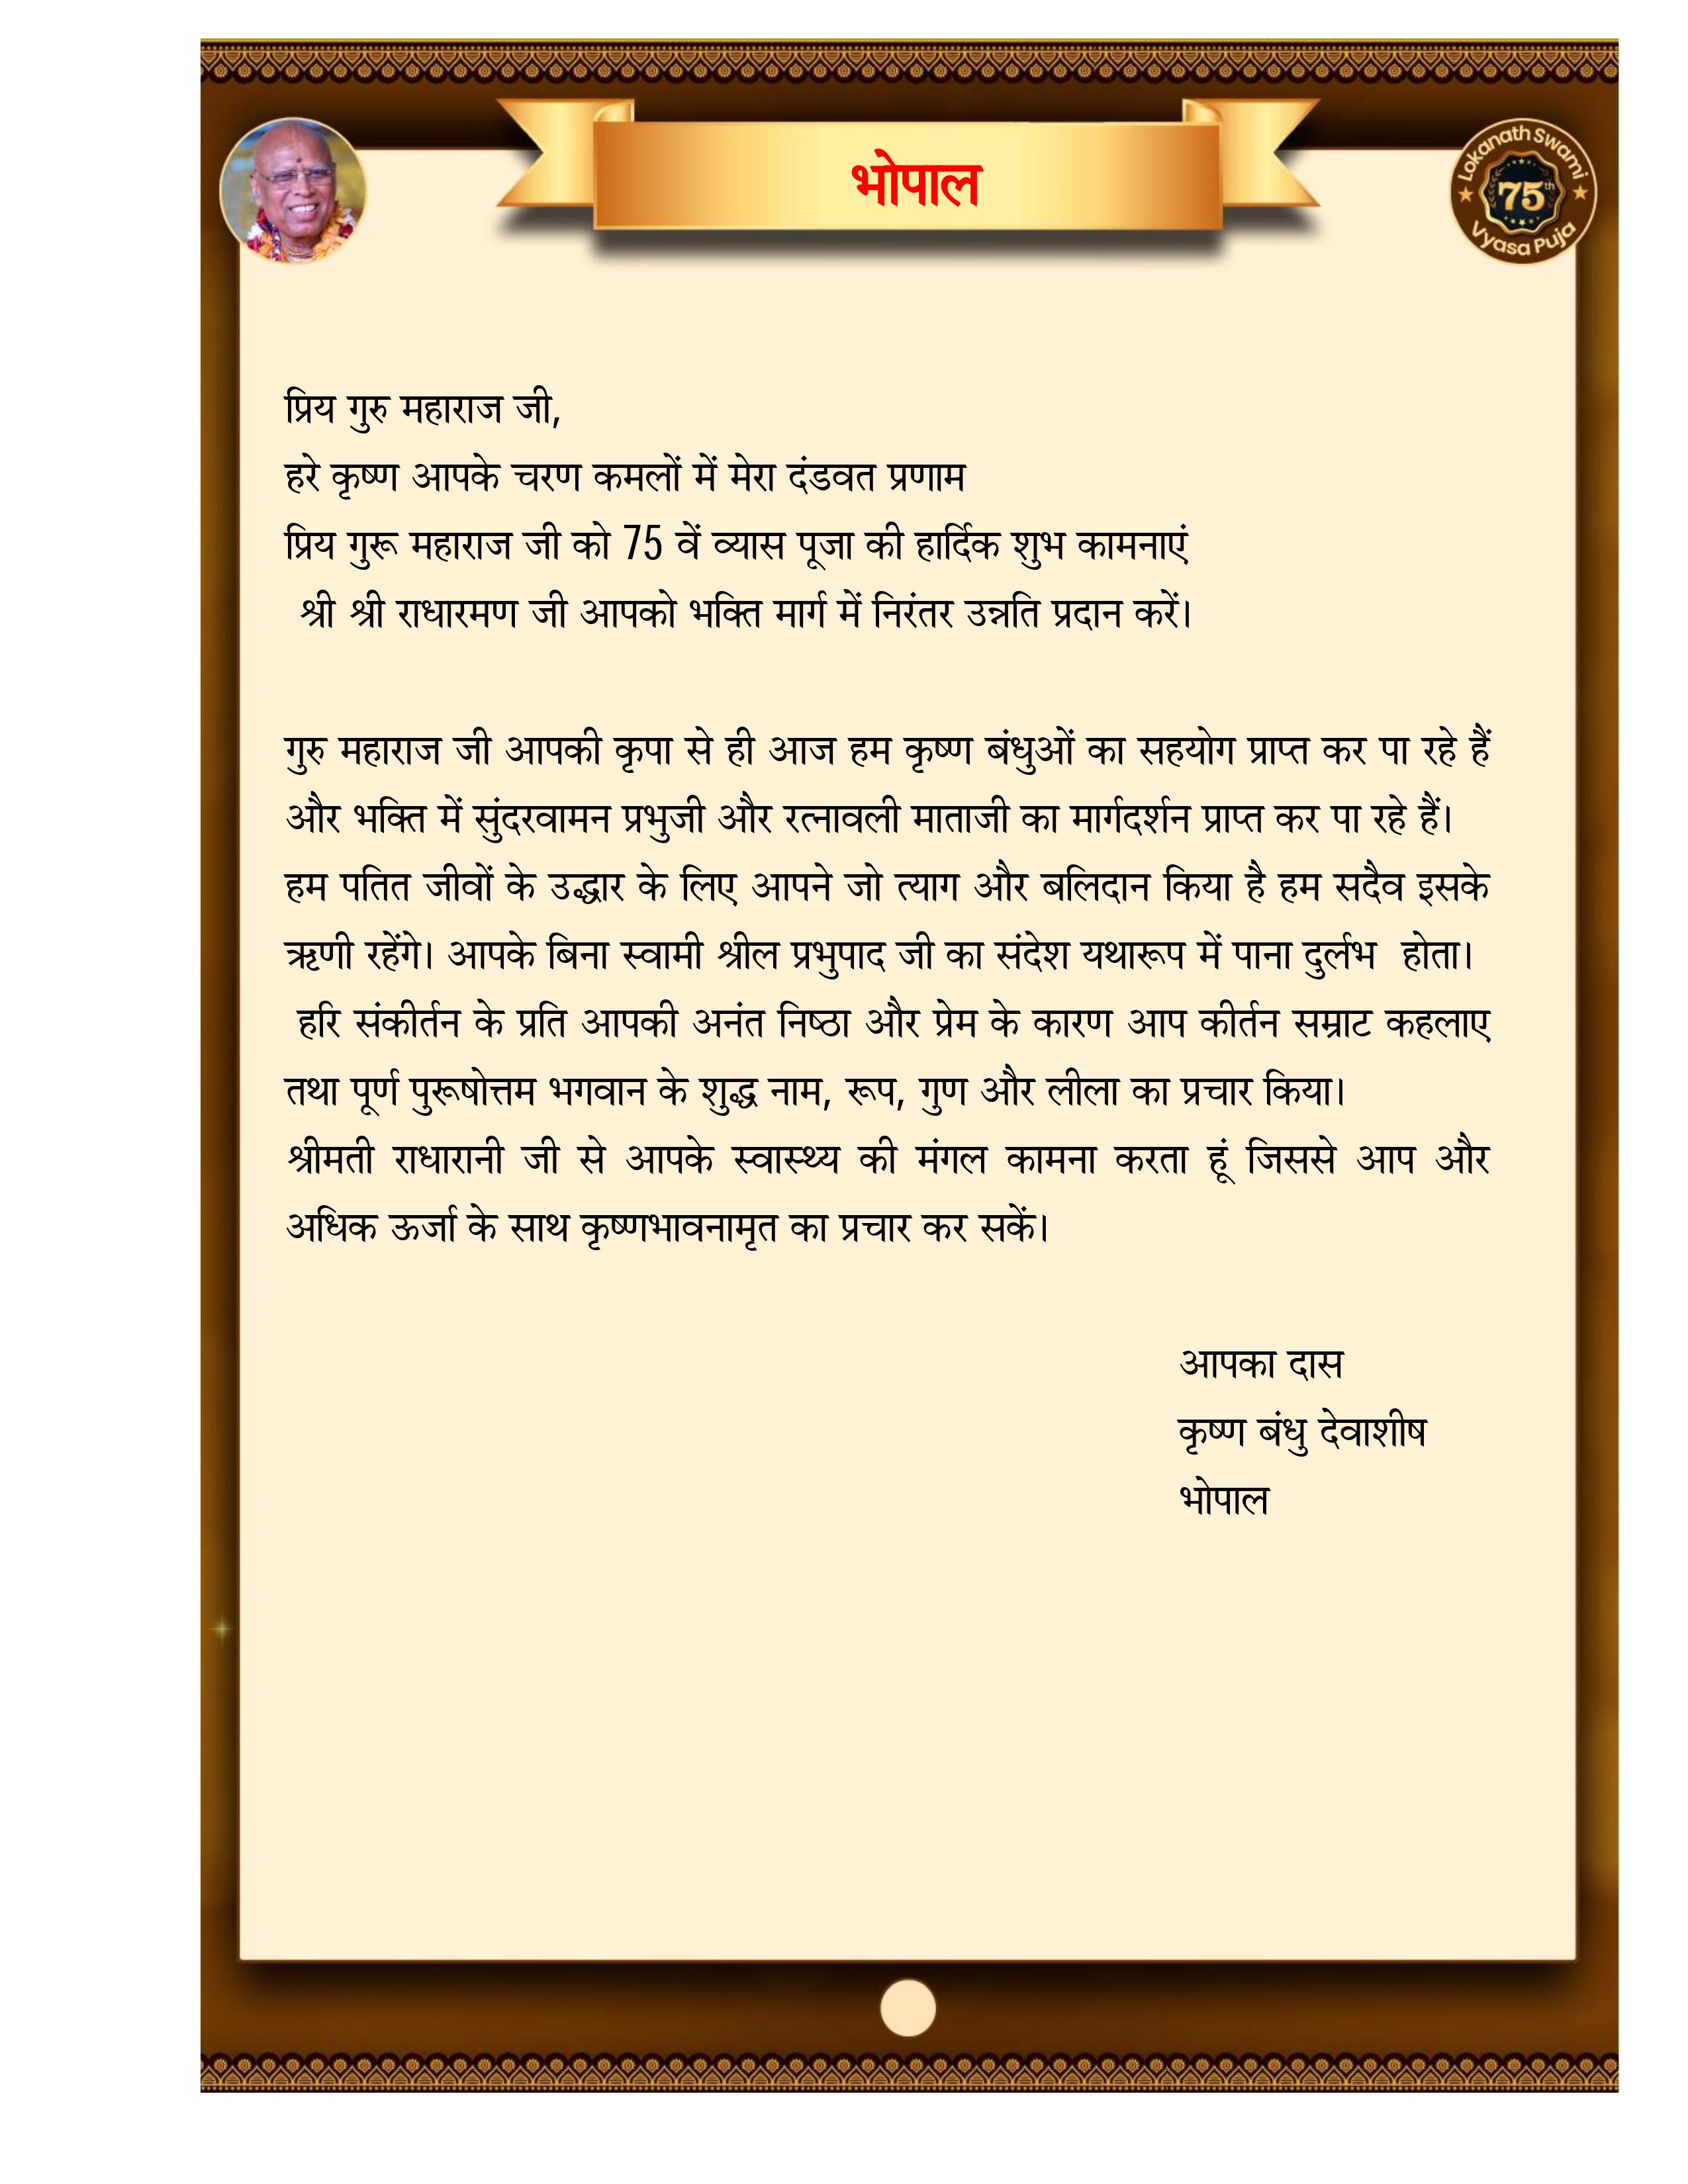 भोपाल
Lokanath Swami
75th
Vyasa Puja
प्रिय गुरु महाराज जी,
हरे कृष्ण आपके चरण कमलों में मेरा दंडवत प्रणाम
प्रिय गुरू महाराज जी को 75 वें व्यास पूजा की हार्दिक शुभ कामनाएं
श्री श्री राधारमण जी आपको भक्ति मार्ग में निरंतर उन्नति प्रदान करें।
गुरु महाराज जी आपकी कृपा से ही आज हम कृष्ण बंधुओं का सहयोग प्राप्त कर पा रहे हैं
और भक्ति में सुंदरवामन प्रभुजी और रत्नावली माताजी का मार्गदर्शन प्राप्त कर पा रहे हैं।
हम पतित जीवों के उद्धार के लिए आपने जो त्याग और बलिदान किया है हम सदैव इसके
ऋणी रहेंगे। आपके बिना स्वामी श्रील प्रभुपाद जी का संदेश यथारूप में पाना दुर्लभ होता।
हरि संकीर्तन के प्रति आपकी अनंत निष्ठा और प्रेम के कारण आप कीर्तन सम्राट कहलाए
तथा पूर्ण पुरूषोत्तम भगवान के शुद्ध नाम, रूप, गुण और लीला का प्रचार किया।
श्रीमती राधारानी जी से आपके स्वास्थ्य की मंगल कामना करता हूं जिससे आप और
अधिक ऊर्जा के साथ कृष्णभावनामृत का प्रचार कर सकें।
आपका दास
कृष्ण बंधु देवाशीष
भोपाल